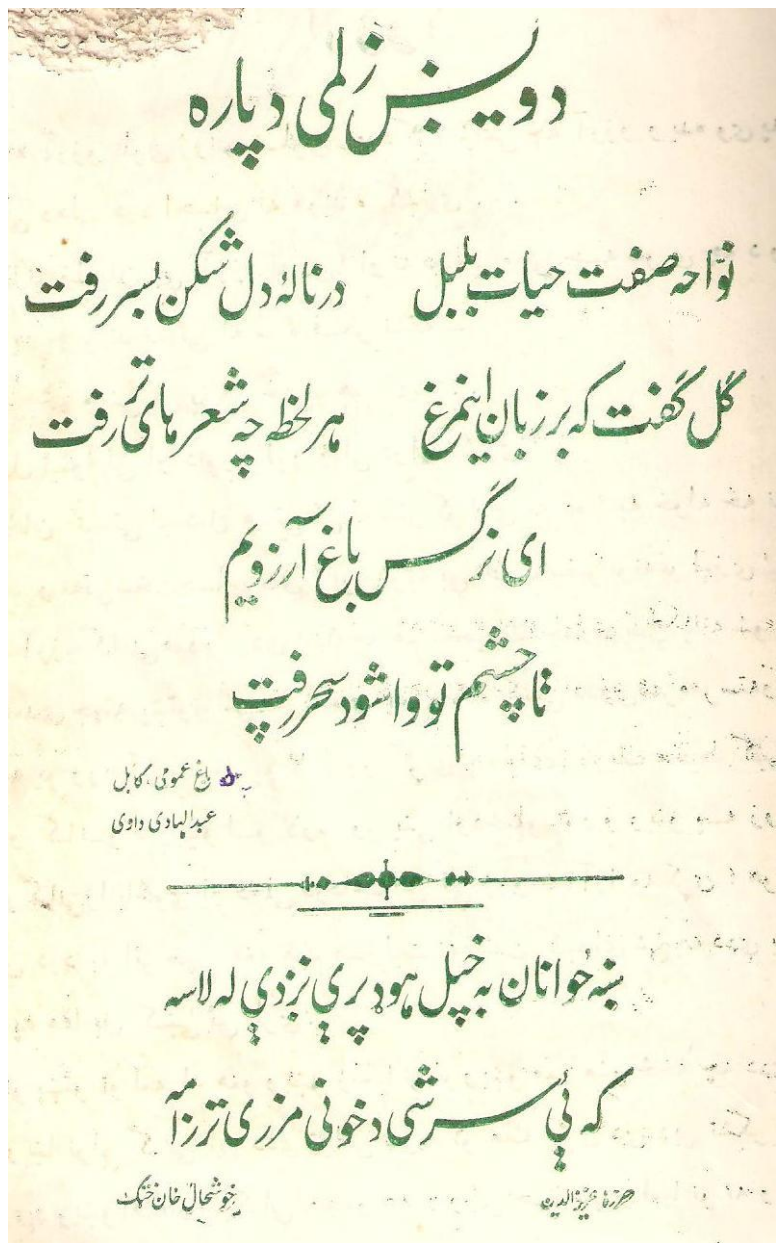 دویښ زلمی دپاره
نواحه صفت حیات بلبل درنالهٔ دل شکن بسر رفت
گل گفت که بر زبان اینمرغ هر لحظه چه شعر های تر رفت
ای نرگس باغ آرزویم
تا چشم تو وا شود سحر رفت
باغ عمومی، کابل
عبدالهادی داوی
ښه ځوانان به خپل هود پرې نږدي له لاسه
که یې سر شی د خونی مزری تر زامه
خوشحال خان خټک